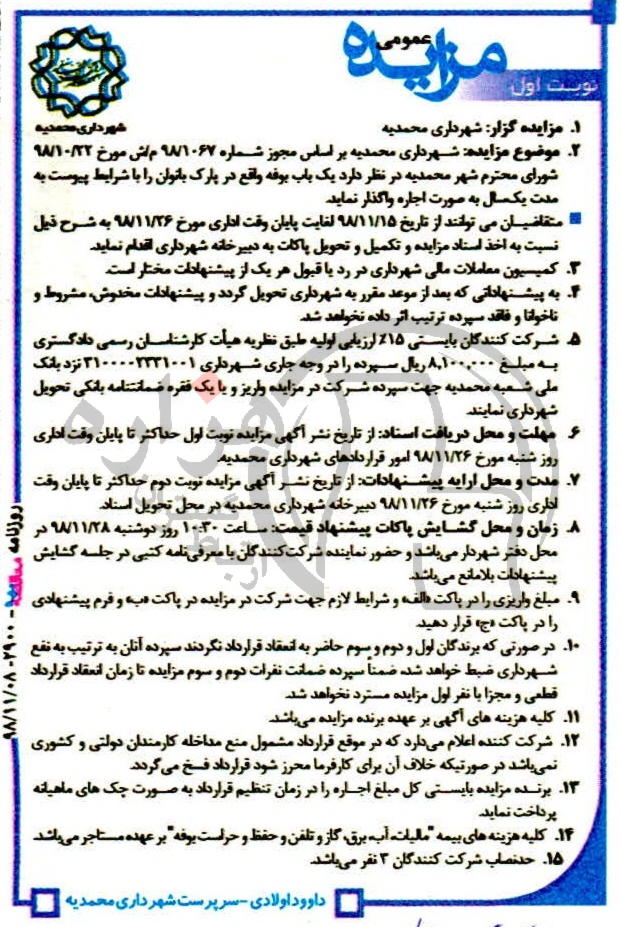 مزایده عمومی
نوبت اول
شهرداری محمدیه
۱. مزایده گزار: شهرداری محمدیه
۲. موضوع مزایده: شهرداری محمدیه بر اساس مجوز شماره ۹۸/۱۰۶۷ م/ش مورخ ۹۸/۱۰/۲۲
شورای محترم شهر محمدیه در نظر دارد یک باب بوفه واقع در پارک بانوان را با شرایط پیوست به
مدت یکسال به صورت اجاره واگذار نماید.
متقاضیان می توانند از تاریخ ۹۸/۱۱/۱۵ لغایت پایان وقت اداری مورخ ۹۸/۱۱/۲۶ به شرح ذیل
نسبت به اخذ اسناد مزایده و تکمیل و تحویل پاکات به دبیرخانه شهرداری اقدام نماید.
۳. کمیسیون معاملات مالی شهرداری در رد یا قبول هر یک از پیشنهادات مختار است.
۴. به پیشنهاداتی که بعد از موعد مقرر به شهرداری تحویل گردد و پیشنهادات مخدوش، مشروط و
ناخوانا و فاقد سپرده ترتیب اثر داده نخواهد شد.
۵. شرکت کنندگان بایستی ۱۵٪ ارزیابی اولیه طبق نظریه هیأت کارشناسان رسمی دادگستری
به مبلغ ۸,۱۰۰,۰۰۰ ریال سپرده را در وجه جاری شهرداری ۳۱۰۰۰۰۲۳۳۱۰۰۱ نزد بانک
ملی شعبه محمدیه جهت سپرده شرکت در مزایده واریز و یا یک فقره ضمانتنامه بانکی تحویل
شهرداری نمایند.
۶. مهلت و محل دریافت اسناد: از تاریخ نشر آگهی مزایده نوبت اول حداکثر تا پایان وقت اداری
روز شنبه مورخ ۹۸/۱۱/۲۶ امور قراردادهای شهرداری محمدیه.
۷. مدت و محل ارایه پیشنهادات: از تاریخ نشر آگهی مزایده نوبت دوم حداکثر تا پایان وقت
اداری روز شنبه مورخ ۹۸/۱۱/۲۶ دبیرخانه شهرداری محمدیه در محل تحویل اسناد.
۸. زمان و محل گشایش پاکات پیشنهاد قیمت: ساعت ۱۰:۳۰ روز دوشنبه ۹۸/۱۱/۲۸ در
محل دفتر شهردار می‌باشد و حضور نماینده شرکت‌کنندگان با معرفی‌نامه کتبی در جلسه گشایش
پیشنهادات بلامانع می‌باشد.
۹. مبلغ واریزی را در پاکت «الف» و شرایط لازم جهت شرکت در مزایده در پاکت «ب» و فرم پیشنهادی
را در پاکت «ج» قرار دهید.
۱۰. در صورتی که برندگان اول و دوم و سوم حاضر به انعقاد قرارداد نگردند سپرده آنان به ترتیب به نفع
شهرداری ضبط خواهد شد، ضمناً سپرده ضمانت نفرات دوم و سوم مزایده تا زمان انعقاد قرارداد
قطعی و مجزا با نفر اول مزایده مسترد نخواهد شد.
۱۱. کلیه هزینه های آگهی بر عهده برنده مزایده می‌باشد.
۱۲. شرکت کننده اعلام می‌دارد که در موقع قرارداد مشمول منع مداخله کارمندان دولتی و کشوری
نمی‌باشد در صورتیکه خلاف آن برای کارفرما محرز شود قرارداد فسخ می‌گردد.
۱۳. برنده مزایده بایستی کل مبلغ اجاره را در زمان تنظیم قرارداد به صورت چک های ماهیانه
پرداخت نماید.
۱۴. کلیه هزینه های بیمه "مالیات، آب، برق، گاز و تلفن و حفظ و حراست بوفه" بر عهده مستاجر می‌باشد.
۱۵. حدنصاب شرکت کنندگان ۳ نفر می‌باشد.
داوود اولادی - سرپرست شهرداری محمدیه
روزنامه - ۲۹۰۰ - ۹۸/۱۱/۰۸
هزاره